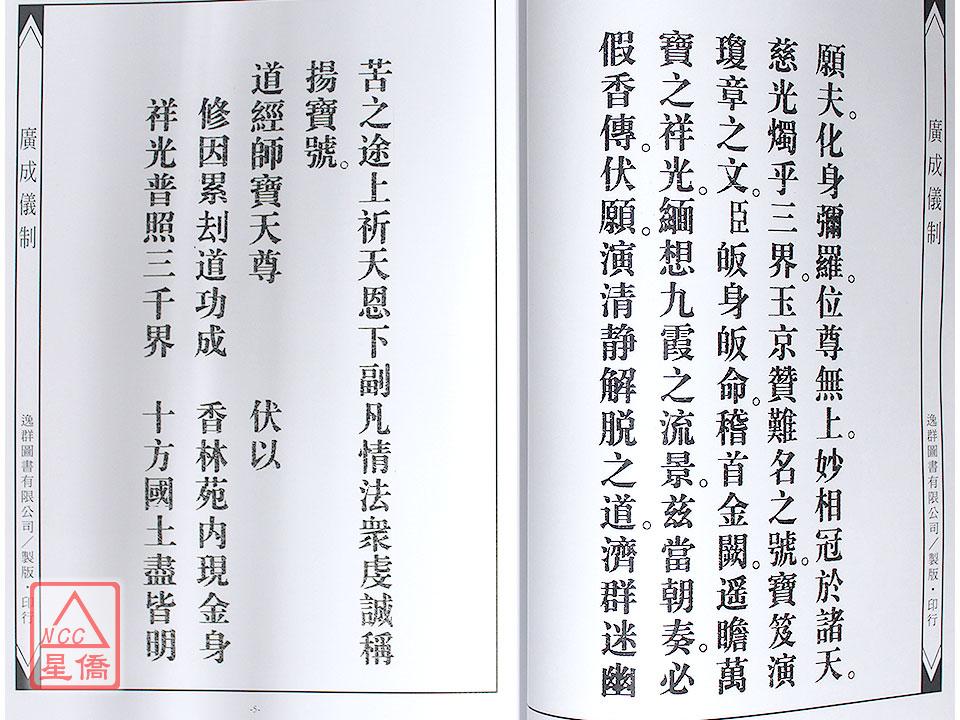 廣成儀制
逸群圖書有限公司／製版・印行
願夫。化身彌羅。位尊無上。妙相冠於諸天。
慈光燭乎三界。玉京贊難名之號。寶笈演
瓊章之文。臣皈身皈命。稽首金闕。遥瞻萬
寶之祥光。緬想九霞之流景。兹當朝奏。必
假香傳。伏願。演清静解脱之道。濟群迷幽
苦之途上祈天恩下副凡情法衆虔誠稱
揚寶號。
道經師寶天尊 伏以
修因累刦道功成 香林苑内現金身
祥光普照三千界 十方國土盡皆明
廣成儀制
逸群圖書有限公司／製版・印行
-5-
NCC
星僑